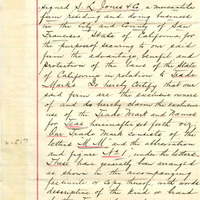 signed S. L. Jones & Co, a mercantile
firm residing and doing business
in the City and County of San
Francisco, State of California for
the purpose of securing to our said
firm the advantage benefit and
protection of the laws of the State
of California in relation to Trade
Marks Do hereby Certify that our
said firm are the exclusive owner
of and do hereby claim the exclusive
use of the Trade Mark and Names
for Teas hereinafter set forth viz.
Our Trade Mark consists of the
letters M M and the abbreviation
and figure No 1 under the letters.
These have usually been arranged
as shown in the accompanying
facsimile or copy thereof, with words
descriptive of the kind or brand